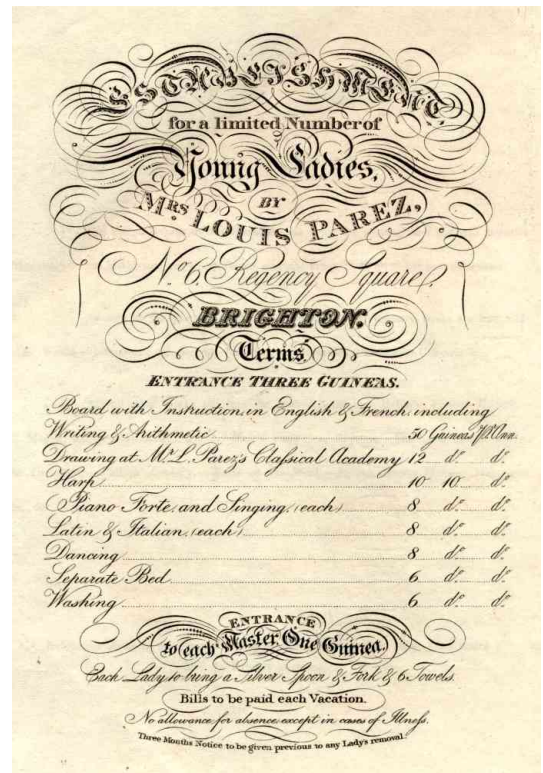 ESTABLISHMENT,
for a limited Number of
Young Ladies,
BY
MRS LOUIS PAREZ,
No. 6, Regency Square,
BRIGHTON.
Terms
ENTRANCE THREE GUINEAS.
Board with Instruction in English & French, including
Writing & Arithmetic 50 Guineas P. Ann.
Drawing at Mr. L. Parez's Classical Academy 12 do. do.
Harp 10 10 do.
Piano Forte, and Singing, (each) 8 do. do.
Latin & Italian, (each) 8 do. do.
Dancing 8 do. do.
Separate Bed 6 do. do.
Washing 6 do. do.
ENTRANCE
to each Master One Guinea.
Each Lady to bring a Silver Spoon & Fork & 6 Towels.
Bills to be paid each Vacation.
No allowance for absence except in cases of Illness.
Three Months Notice to be given previous to any Lady's removal.